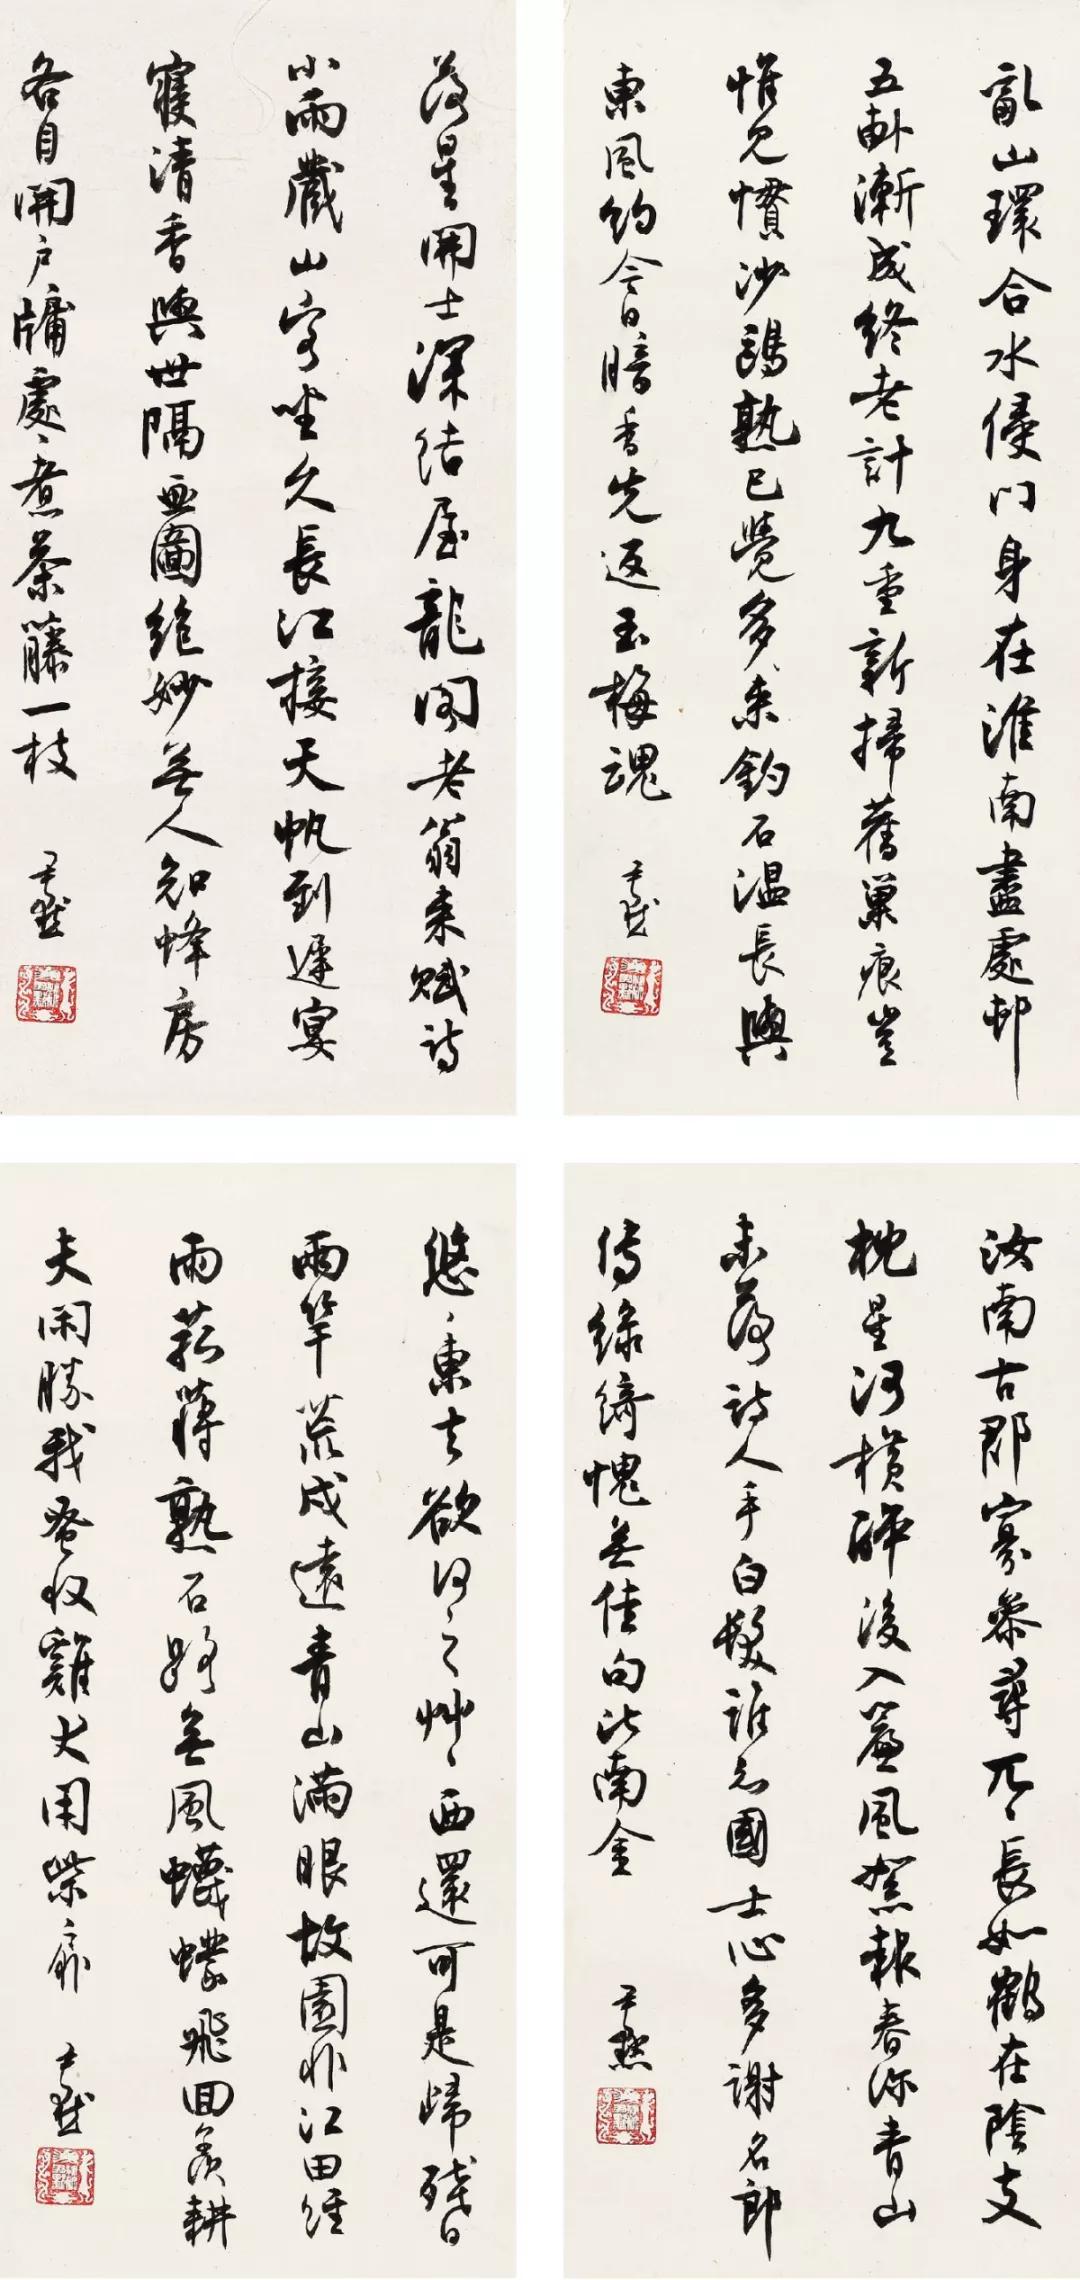 亂山環合水侵門身在淮南盡處邨
五畝漸成終老計九重新掃舊巢痕豈
惟見慣沙鷗熟已覺多來釣石溫長與
東風約今日暗香先返玉梅魂
尹默
落星開士深結屋龍閣老翁來賦詩
小雨藏山客坐久長江接天帆到遲宴
寢清香與世隔畫圖絕妙無人知蜂房
各自開戶牖處〻煮茶藤一枝
尹默
汝南古郡寡參尋兀〻長如鶴在陰支
枕星河橫醉後入簾風絮報春深青山
未落詩人手白髮誰知國士心多謝名郎
傳綠綺愧無佳句比南金
尹默
悠〻東去欲何之艸〻西還可是歸殘日
兩竿荒戍遠青山滿眼故園非江田經
雨菰蔣熟石路無風蠛蠓飛回羨耕
夫閑勝我蚤收雞犬閉柴扉
尹默